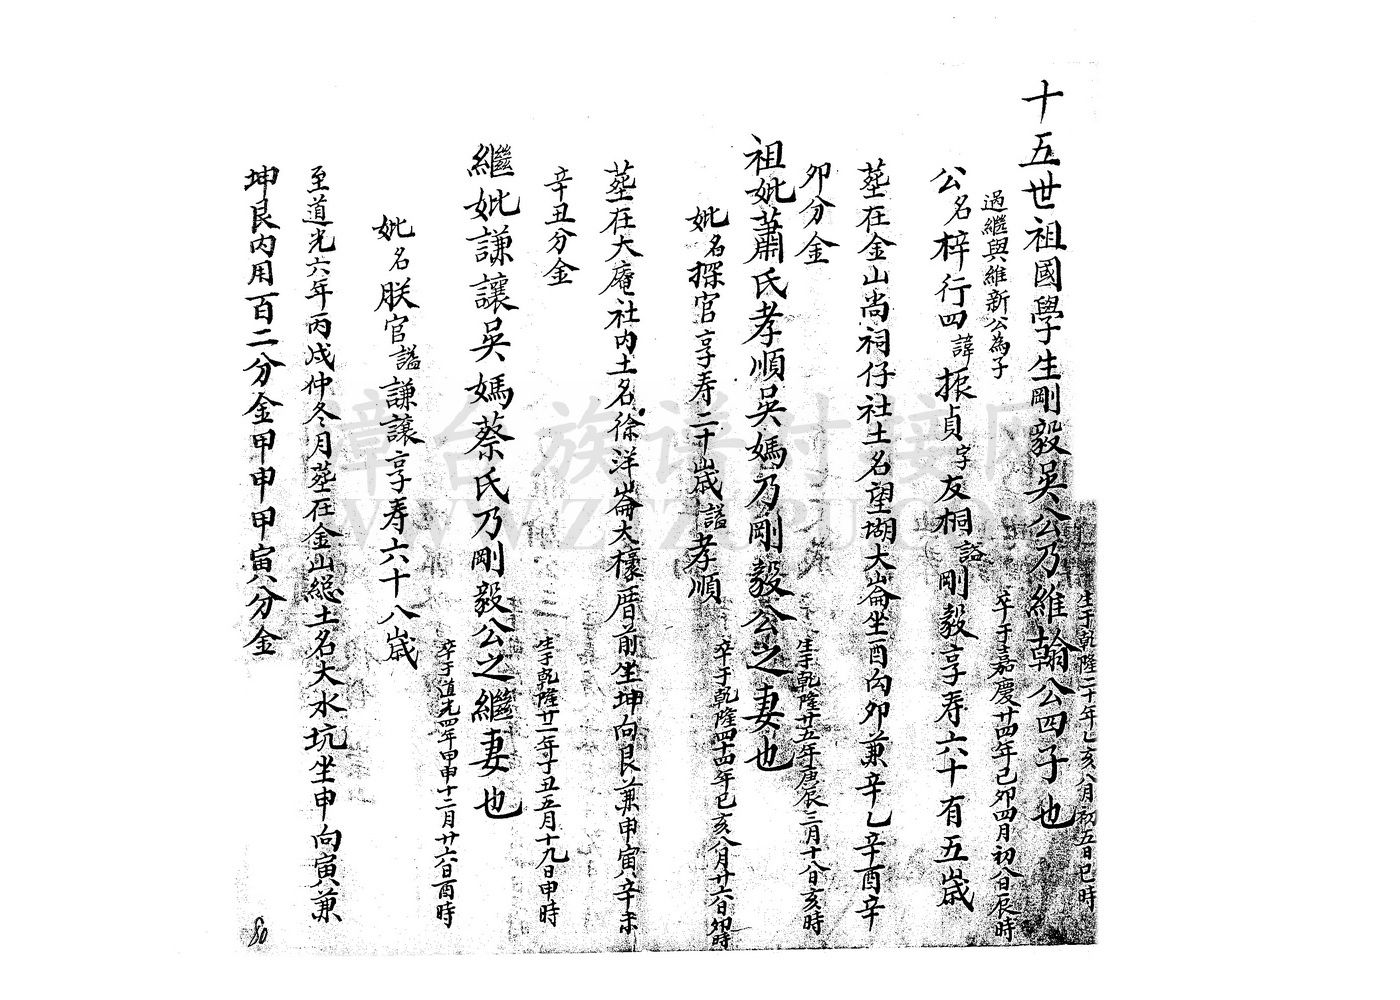 生于乾隆二十年乙亥八月初五日巳時
十五世祖國學生剛毅吳公乃維翰公四子也
過繼與維新公為子
卒于嘉慶廿四年己卯四月初八日辰時
公名梓行四諱振貞字友桐謚剛毅享寿六十有五歲
塟在金山尚祠仔社土名望堋大崙坐酉向卯兼辛乙辛酉辛
卯分金
生于乾隆廿五年庚辰三月十八日亥時
祖妣蕭氏孝順吳媽乃剛毅公之妻也
妣名探官享寿二十歲謚孝順
卒于乾隆四十四年己亥八月廿六日卯時
塟在大庵社内土名徐洋崙大檺厝前坐坤向艮兼申寅辛未
辛丑分金
生于乾隆廿二年丁丑五月十九日申時
繼妣謙讓吳媽蔡氏乃剛毅公之繼妻也
卒于道光四年甲申十二月廿六日酉時
妣名朕官謚謙讓享寿六十八歲
至道光六年丙戌仲冬月塟在金山総土名大水坑坐申向寅兼
坤艮内用百二分金甲申甲寅分金
80
漳台族谱对接网
WWW.ZTZUPU.COM